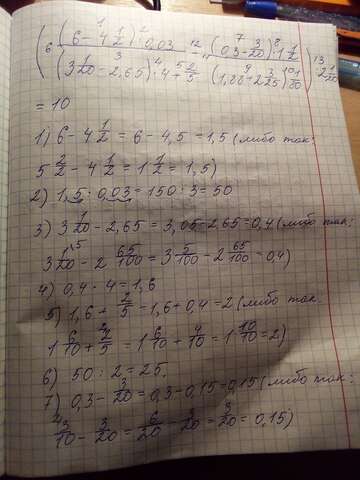 ( (6 - 4 1/2) : 0,03 / ((3 1/20 - 2,65) · 4 + 2/5) - (0,3 - 3/20) · 1 1/2 / ((1,88 + 2 3/25) · 1/80) ) : 2 1/20
= 10
1) 6 - 4 1/2 = 6 - 4,5 = 1,5 (либо так:
5 2/2 - 4 1/2 = 1 1/2 = 1,5)
2) 1,5 : 0,03 = 150 : 3 = 50
3) 3 1/20 - 2,65 = 3,05 - 2,65 = 0,4 (либо так:
3 1/20 - 2 65/100 = 3 5/100 - 2 65/100 = 0,4)
4) 0,4 · 4 = 1,6
5) 1,6 + 2/5 = 1,6 + 0,4 = 2 (либо так:
1 6/10 + 2/5 = 1 6/10 + 4/10 = 1 10/10 = 2)
6) 50 : 2 = 25.
7) 0,3 - 3/20 = 0,3 - 0,15 = 0,15 (либо так:
3/10 - 3/20 = 6/20 - 3/20 = 3/20 = 0,15)